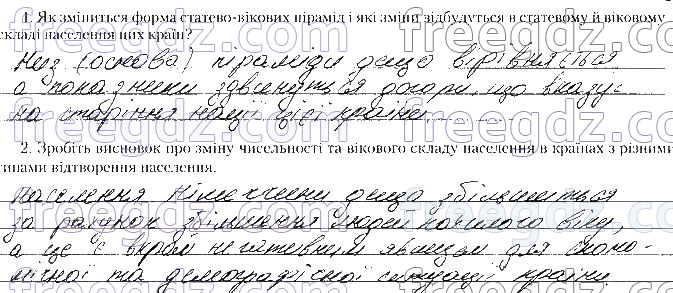 1. Як зміниться форма статево-вікових пірамід і які зміни відбудуться в статевому й віковому
складі населення цих країн?
Низ (основа) піраміди дещо вирівняється
а показники здвинуться догори, що вказує
на старіння нації цієї країни.
2. Зробіть висновок про зміну чисельності та вікового складу населення в країнах з різними
типами відтворення населення.
Населення Німеччини дещо збільшиться
за рахунок збільшення людей похилого віку,
а це є вкрай негативним явищем для еконо-
мічної та демографічної ситуації країни
freegdz.com freegdz.com freegdz.com